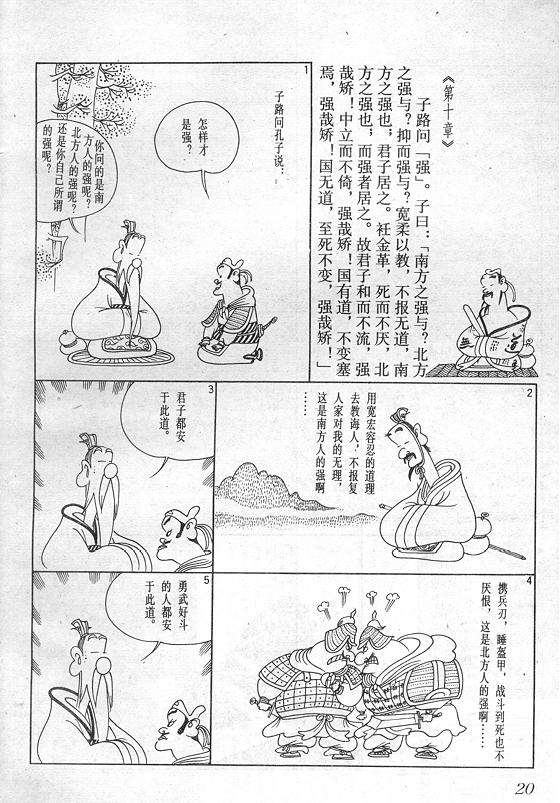 《第十章》
子路问「强」。子曰：「南方之强与？北方
之强与？抑而强与？宽柔以教，不报无道，南
方之强也，君子居之。衽金革，死而不厌，北
方之强也；而强者居之。故君子和而不流，强
哉矫！中立而不倚，强哉矫！国有道，不变塞
焉，强哉矫！国无道，至死不变，强哉矫！」
1
子路问孔子说：
怎样才
是强？
你问的是南
方人的强呢？
北方人的强呢？
还是你自己所谓
的强呢？
2
用宽宏容忍的道理
去教诲人，不报复
人家对我的无理，
这是南方人的强啊
……
3
君子都安
于此道。
4
携兵刃，睡盔甲，战斗到死也不
厌恨，这是北方人的强啊……
5
勇武好斗
的人都安
于此道。
20